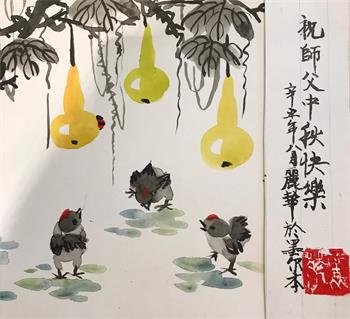 祝師父中秋快樂
辛丑年八月麗華於墨